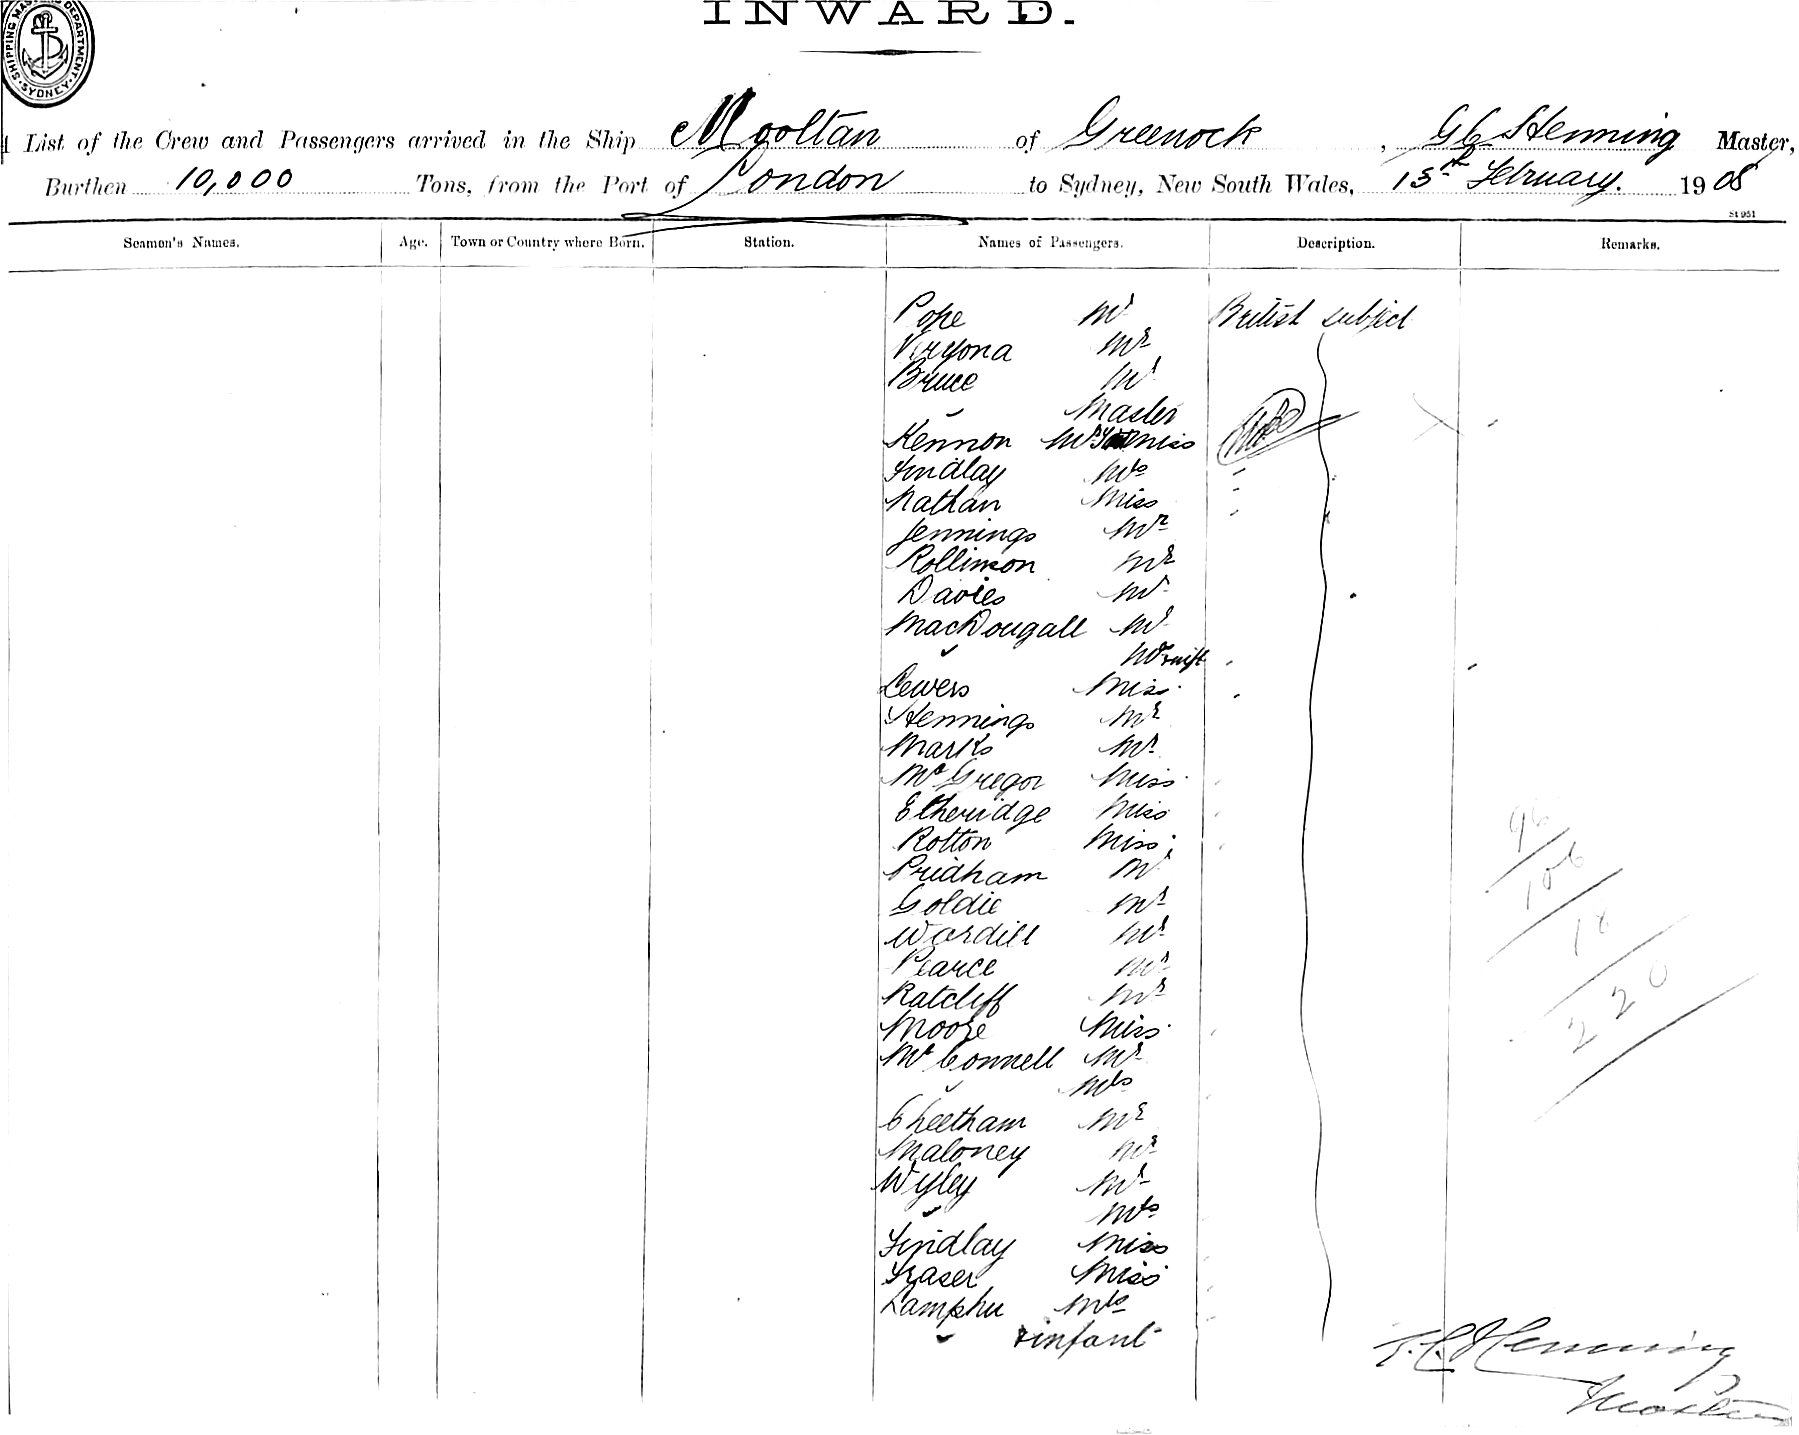 INWARD.
SHIPPING MASTERS DEPARTMENT SYDNEY
List of the Crew and Passengers arrived in the Ship Mooltan of Greenock, G C Henning Master,
Burthen 10,000 Tons, from the Port of London to Sydney, New South Wales, 13th February. 1908
St 951
Seamen's Names. Age. Town or Country where Born. Station. Names of Passengers. Description. Remarks.
Pope Mr British subject
Viryona Mr
Bruce Mr
" Master
Kennon Miss
Findlay Mrs
Nathan Miss
Jennings Mr
Rollinson Mr
Davies Mr
MacDougall Mr
"
Lewers Miss
Hennings Mr
Marks Mr
McGregor Miss
Etheridge Miss
Rotton Miss
Pridham Mr
Goldie Mr
Wardill Mr
Pearce Mr
Ratcliff Mr
Moore Miss
McConnell Mr
" Mrs
Cheetham Mr
Maloney Mr
Wyley Mr
" Mrs
Findlay Miss
Fraser Miss
Mrs
" + infant
96
106
18
220
Henning
Master